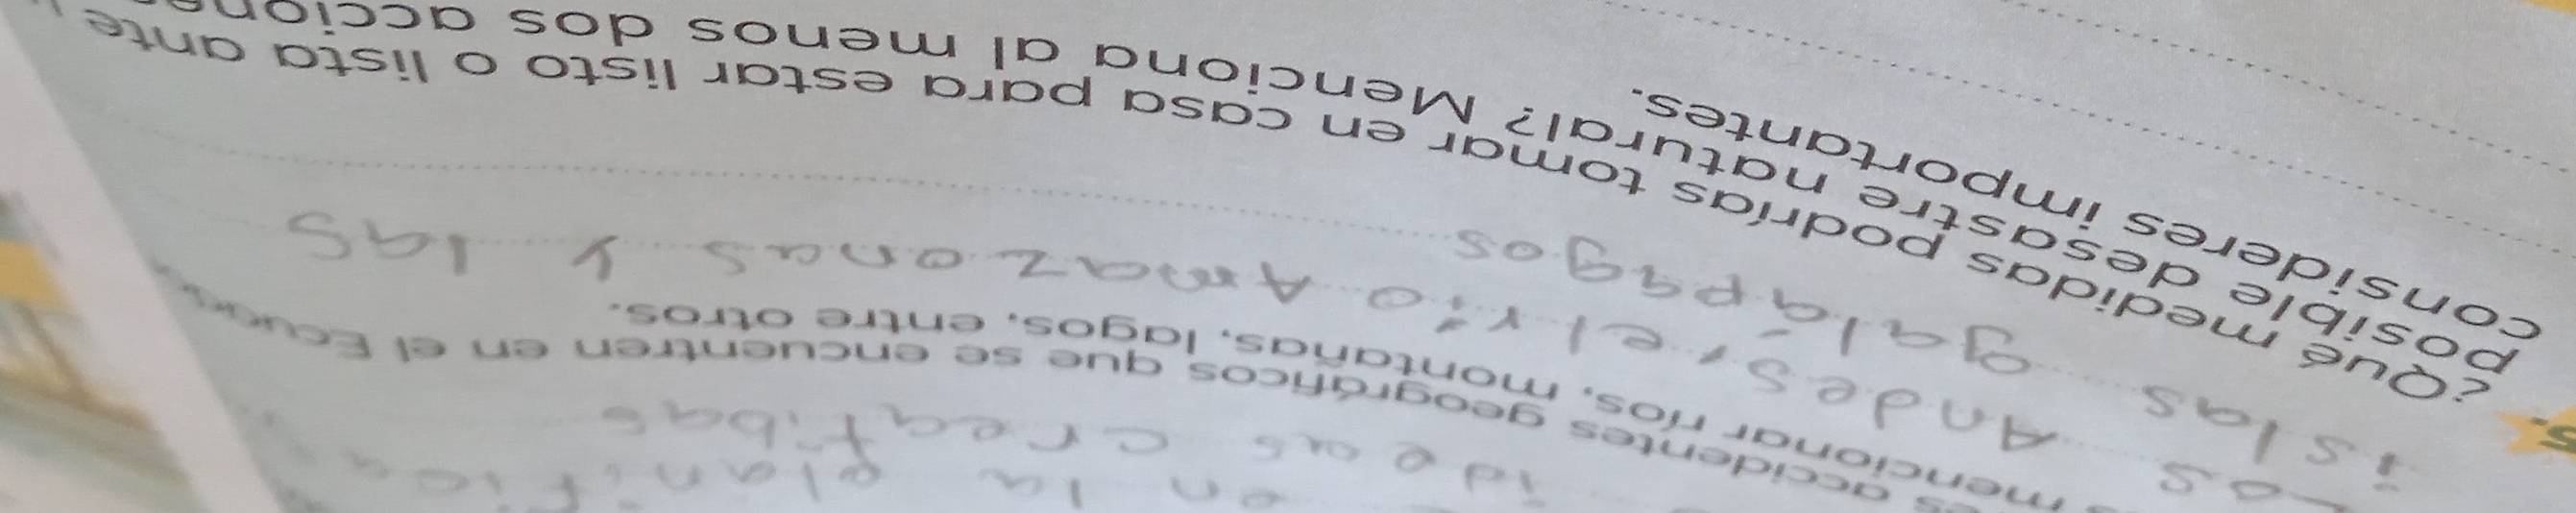 en la planifica
ideas creatibas
accidentes geográficos que se encuentren en el Ecuador
mencionar ríos, montañas, lagos, entre otros.
Los Andes, el río Amazonas y las
islas galápagos
5.
¿Qué medidas podrías tomar en casa para estar listo o lista ante
posible desastre natural? Menciona al menos dos accione
consideres importantes.